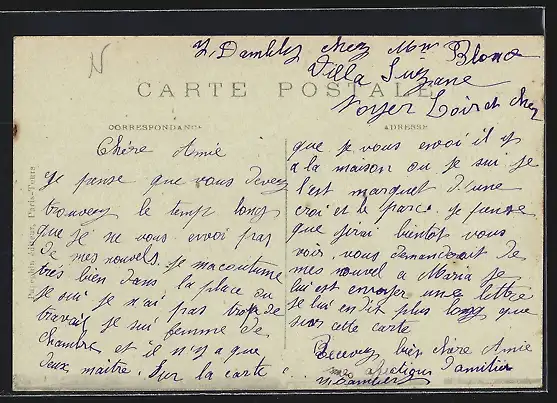 Y Dambly chez Mm Blond
Villa Suzane
Noyer Loir et Cher
CARTE POSTALE
CORRESPONDANCE
ADRESSE
Chère Amie
Je pense que vous devez
trouvez le temp long
que je ne vous envoi pas
de mes nouvels. je macoutume
très bien dans la place ou
je sui je n'ai pas trop de
travail je sui femme de
chambre et il n'y a que
deux maitre. Sur la carte
que je vous envoi il y
a la maison ou je sui je
l'est marquet d'une
croi et le parc. je pense
que jirai bientot vous
voir. vous demanderait de
mes nouvel a Maria je
lui est envoyer une lettre
je lui en dit plus long que
sur cette carte
Recevez bien chère Amie
mes amitier
Y Dambly
édit
Paris-Tours
N